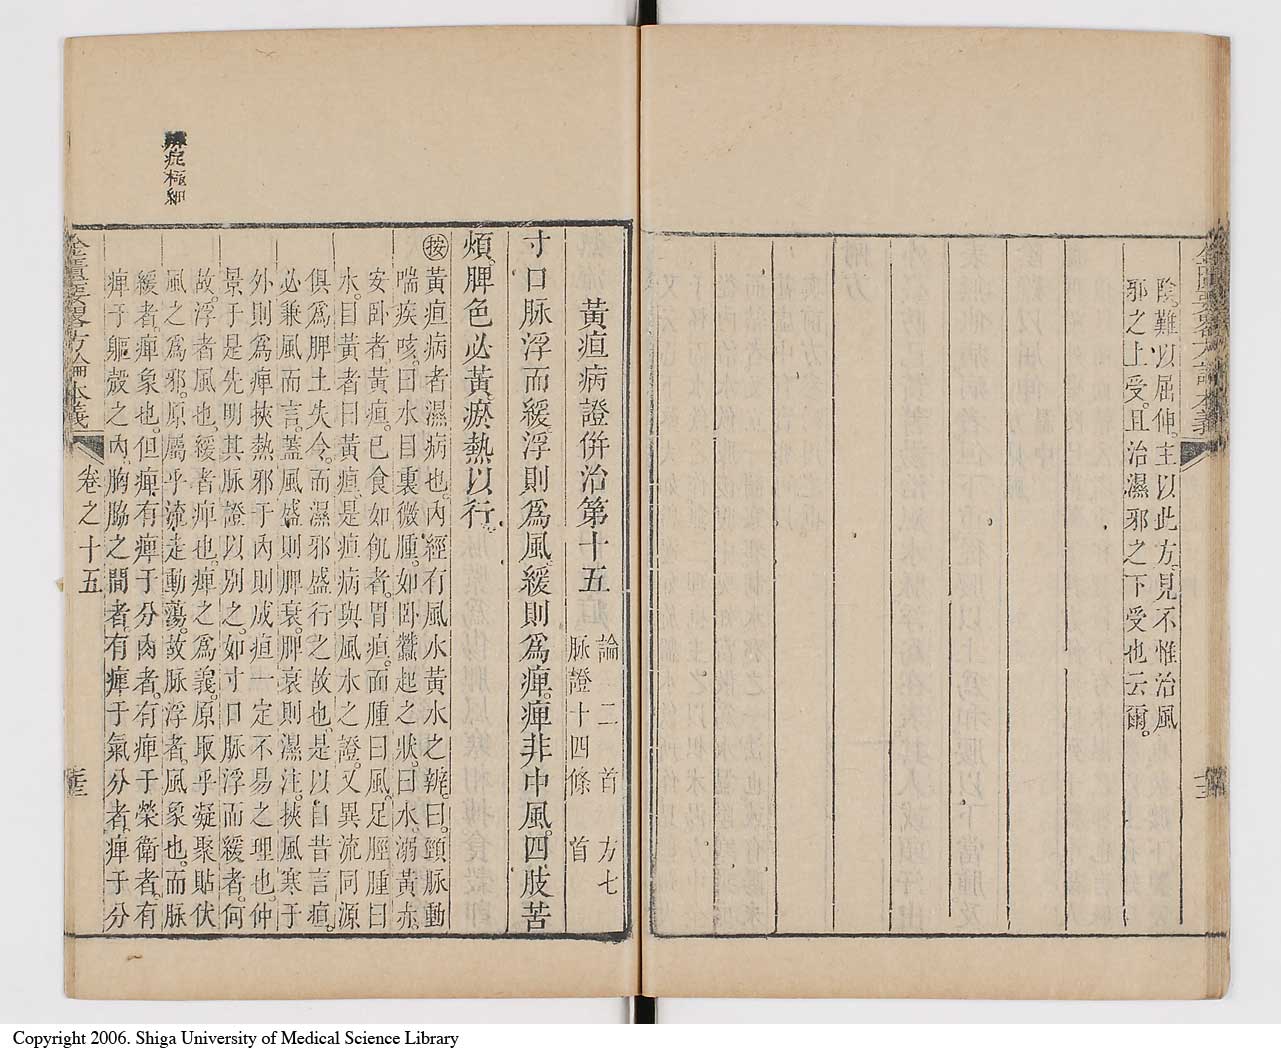 陰。難以屈伸。主以此方。見不惟治風
邪之上受。且治濕邪之下受也云爾。
黃疸病證併治第十五
論二首 方七
脉證十四條 首
寸口脉浮而緩。浮則爲風。緩則爲痺。痺非中風。四肢苦
煩。脾色必黃。瘀熱以行。
按黃疸病者。濕病也。內經有風水黃水之辨。曰。頸脉動
喘疾咳。曰水。目裏微腫。如卧蠶起之狀。曰水。溺黃赤。
安卧者。黃疸。已食如飢者。胃疸。面腫曰風。足脛腫曰
水。目黃者曰黃疸。是疸病與風水之證。又異流同源
俱爲脾土失令。而濕邪盛行之故也。是以自昔言疸。
必兼風而言。葢風盛則脾衰。脾衰則濕注。挾風寒于
外則爲痺。挾熱邪于內則成疸。一定不易之理也。仲
景于是先明其脉證以別之。如寸口脉浮而緩者。何
故。浮者風也。緩者痺也。痺之爲義。原取乎凝聚貼伏
風之爲邪。原屬乎流走動蕩。故脉浮者。風象也。而脉
緩者。痺象也。但痺有痺于分肉者。有痺于榮衛者。有
痺于軀殻之內。胸脇之間者。有痺于氣分者。痺于分
金匱要畧方論本義
卷之十五
辨症極細
金匱要畧方論本義